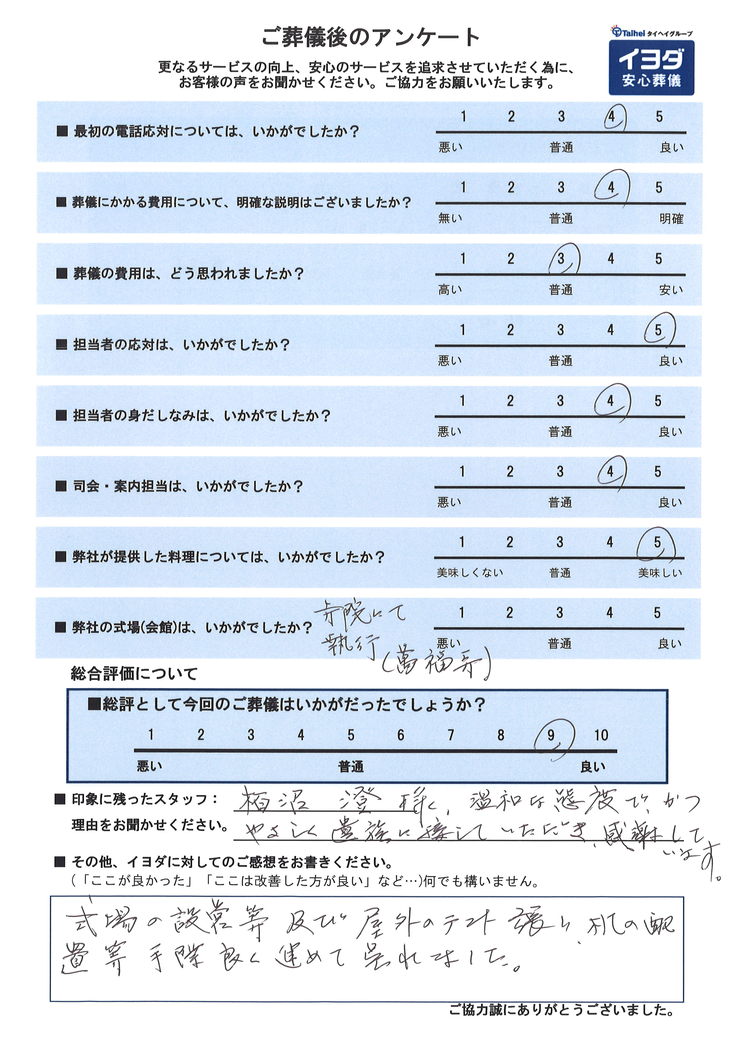 ご葬儀後のアンケート
Taihei タイヘイグループ
イヨダ
安心葬儀
更なるサービスの向上、安心のサービスを追求させていただく為に、
お客様の声をお聞かせください。ご協力をお願いいたします。
■ 最初の電話応対については、いかがでしたか？
1 2 3 4 5
悪い 普通 良い
■ 葬儀にかかる費用について、明確な説明はございましたか？
1 2 3 4 5
無い 普通 明確
■ 葬儀の費用は、どう思われましたか？
1 2 3 4 5
高い 普通 安い
■ 担当者の応対は、いかがでしたか？
1 2 3 4 5
悪い 普通 良い
■ 担当者の身だしなみは、いかがでしたか？
1 2 3 4 5
悪い 普通 良い
■ 司会・案内担当は、いかがでしたか？
1 2 3 4 5
悪い 普通 良い
■ 弊社が提供した料理については、いかがでしたか？
1 2 3 4 5
美味しくない 普通 美味しい
■ 弊社の式場(会館)は、いかがでしたか？
寺院にて
執行
(萬福寺)
1 2 3 4 5
悪い 普通 良い
総合評価について
■総評として今回のご葬儀はいかがだったでしょうか？
1 2 3 4 5 6 7 8 9 10
悪い 普通 良い
■ 印象に残ったスタッフ：
栢沼 澄 様、温和な態度で、かつ
理由をお聞かせください。
やさしく遺族に接していただき、感謝して
います。
■ その他、イヨダに対してのご感想をお書きください。
（「ここが良かった」「ここは改善した方が良い」など…)何でも構いません。
式場の設営等 及び 屋外のテント張り、机の配
置等手際良く進めて呉れました。
ご協力誠にありがとうございました。